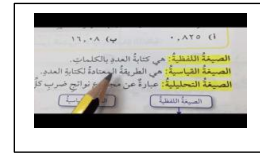 أ) ٠,٨٢٥ ب) ١٦,٠٨
الصيغةُ اللفظيةُ: هي كتابةُ العددِ بالكلماتِ.
الصيغةُ القياسيةُ: هي الطريقةُ المعتادةُ لكتابةِ العددِ.
الصيغةُ التحليليةُ: عبارةٌ عن نواتجِ ضربِ
الصيغة اللفظية